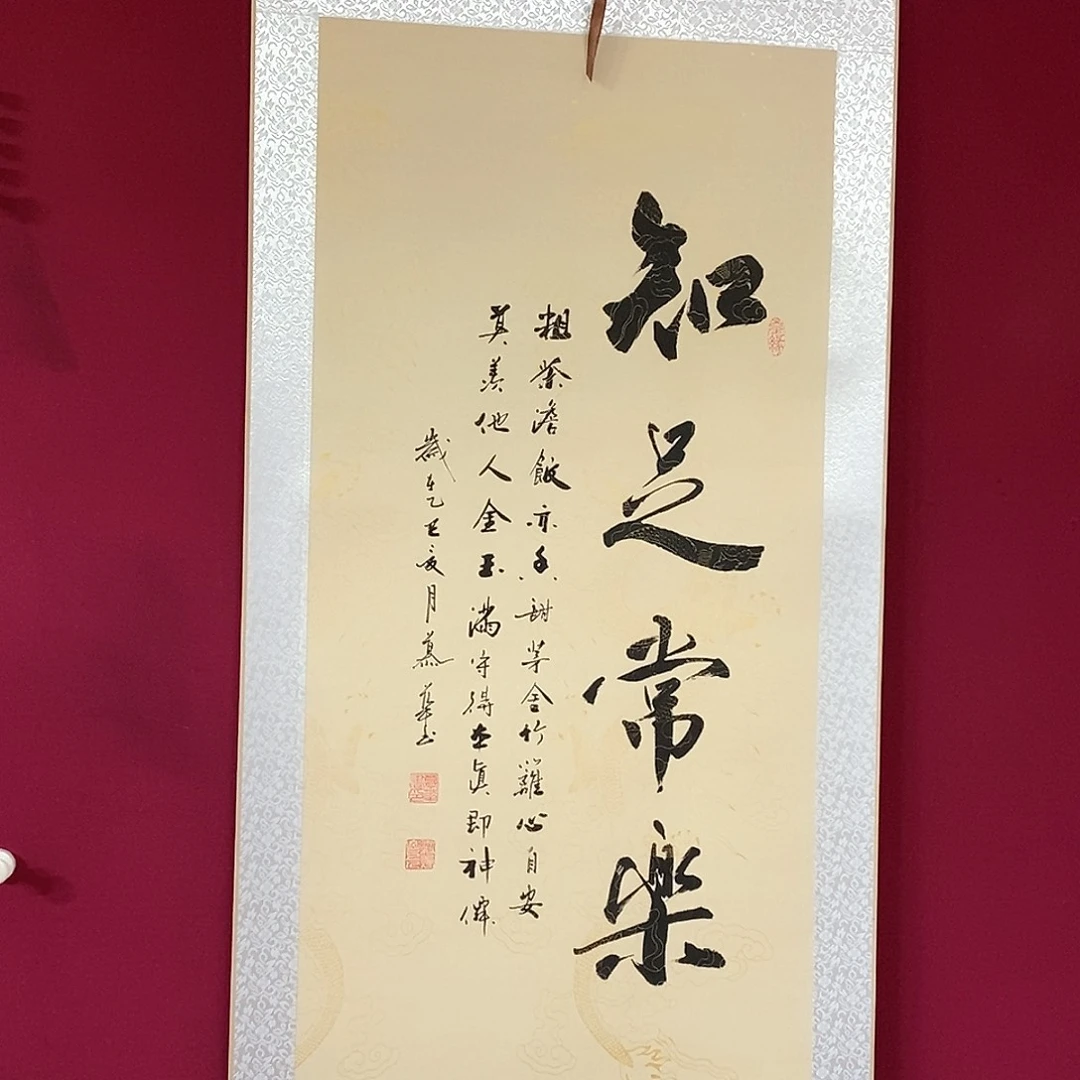 知足常樂
粗茶澹飯亦香甜茅舍竹籬心自安
莫羨他人金玉滿守得本真即神僊
歲在乙巳亥月慕華書